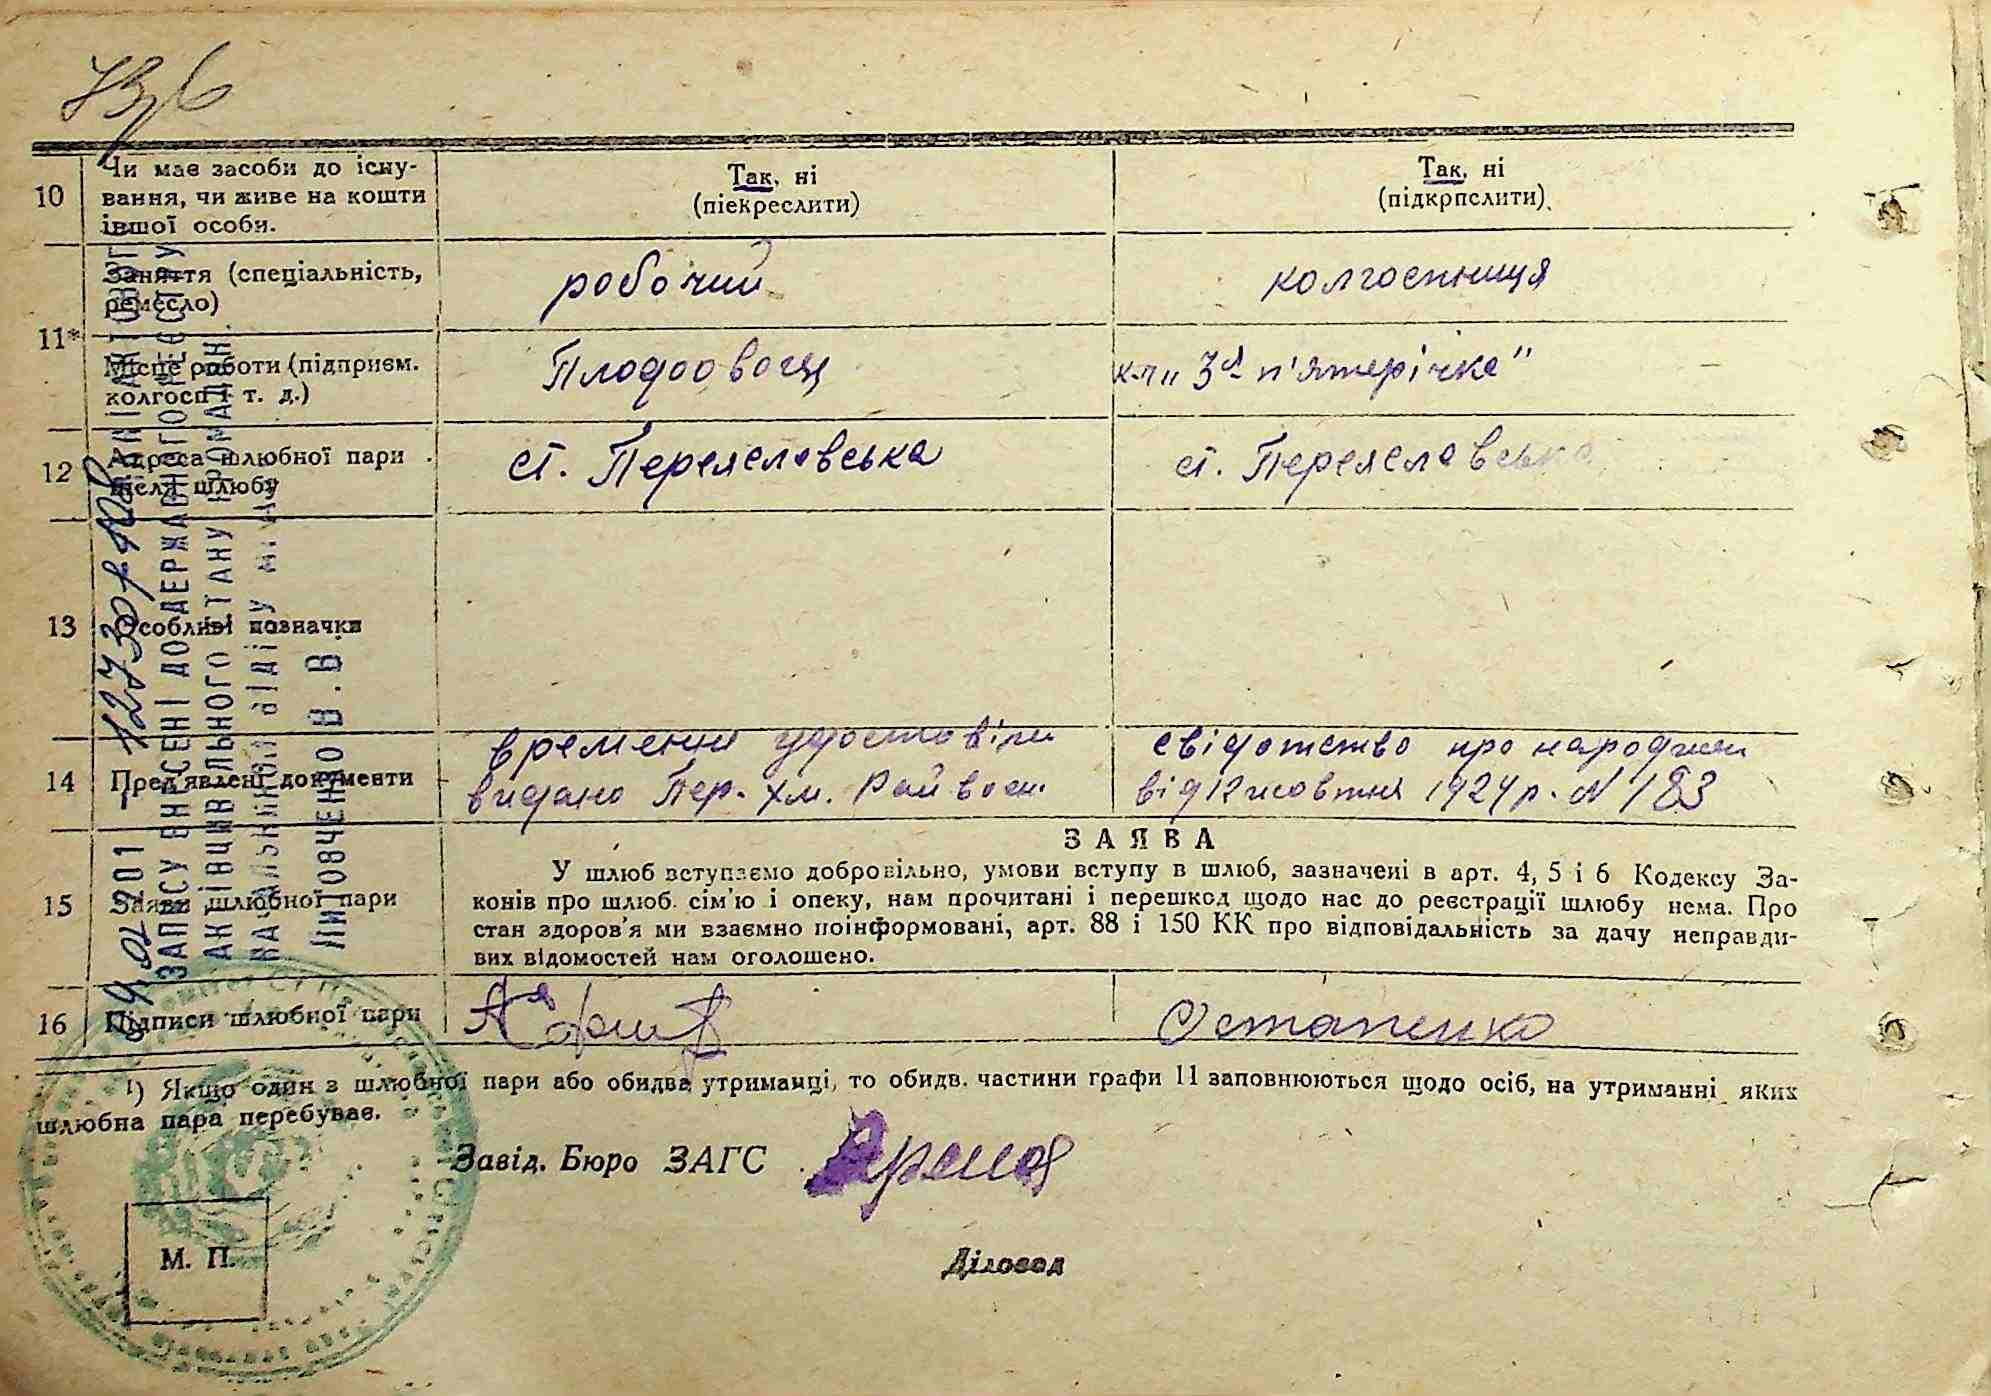 10
Чи має засоби до існу-
вання, чи живе на кошти
івшої особи.
Так, ні
(піекреслити)
Так, ні
(підкрпслити)
11*
Заняття (спеціальність,
ремесло)
робочий
колгоспниця
Місце роботи (підприєм.
колгосп і т. д.)
Плодоовощ
к-п „3а п'ятерічка"
12
Адреса шлюбної пари
після шлюбу
ст. Переяславська
ст. Переяславська
13
Особливі позначки
14
Пред'явлені документи
времени удостовіри
видано Пер. Хм. Райвоен.
свідотство про народжен
від 12 жовтня 1924 р. N 183
15
Заяви шлюбної пари
ЗАЯВА
У шлюб вступаємо добровільно, умови вступу в шлюб, зазначені в арт. 4, 5 і 6 Кодексу За-
конів про шлюб. сім'ю і опеку, нам прочитані і перешкод щодо нас до реєстрації шлюбу нема. Про
стан здоров'я ми взаємно поінформовані, арт. 88 і 150 КК про відповідальність за дачу неправди-
вих відомостей нам оголошено.
16
Підписи шлюбної пари
Остапенко
¹) Якщо один з шлюбної пари або обидва утриманці, то обидв. частини графи 11 заповнюються щодо осіб, на утриманні яких
шлюбна пара перебуває.
Завід. Бюро ЗАГС
М. П.
Діловод
ЗАПИСУ ВНЕСЕНІ ДО ДЕРЖАВНОГО РЕЄСТРУ
АКТІВ ЦИВІЛЬНОГО СТАНУ ГРОМАДЯН